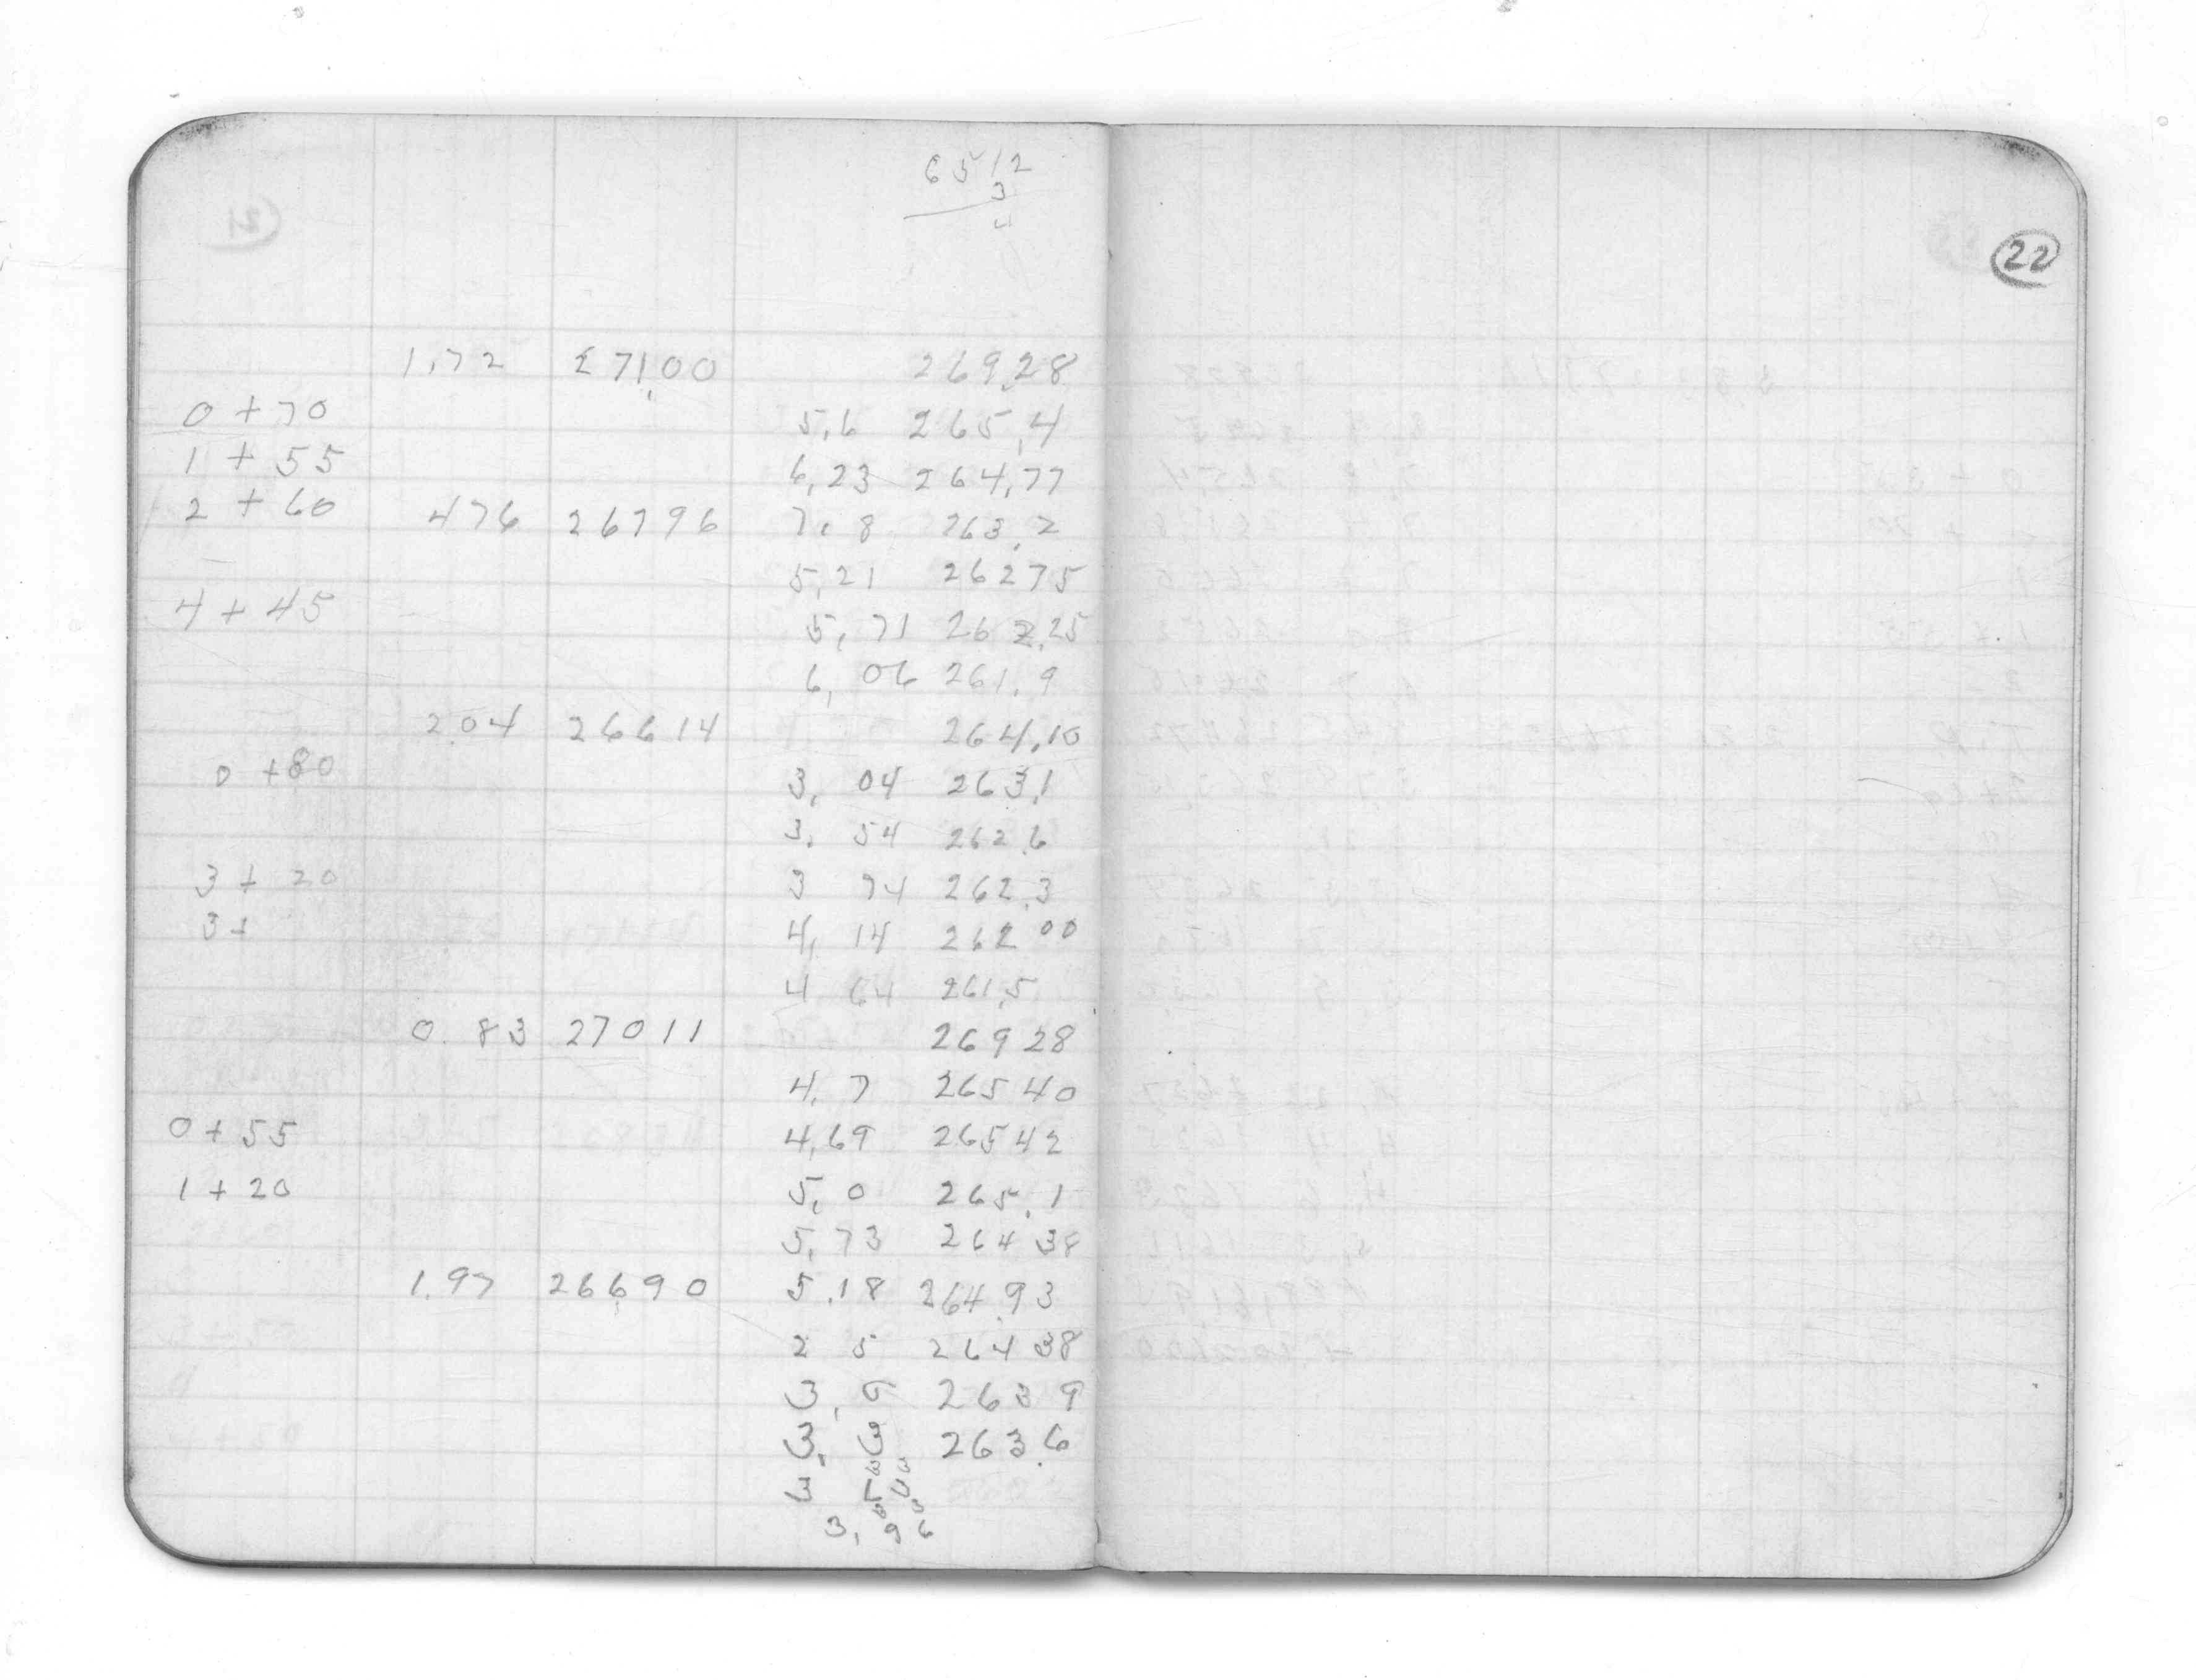 6512
3
4
22
1.72 271.00 269.28
0 + 70 5.6 265.4
1 + 55 6.23 264.77
2 + 60 476 26796 7.8 263.2
5.21 26275
4 + 45 5.71 262.25
6.06 261.9
2.04 26614 264.10
0 + 80 3.04 263.1
3.54 262.6
3 + 20 3 74 262.3
3 + 4.14 262 00
4 64 261.5
0.83 27011 26928
4.7 26540
0 + 55 4.69 26542
1 + 20 5.0 265.1
5.73 264 38
1.97 266.90 5.18 264.93
2 5 264 38
3.0 263 9
3.3 263.6
3
3. 9 6